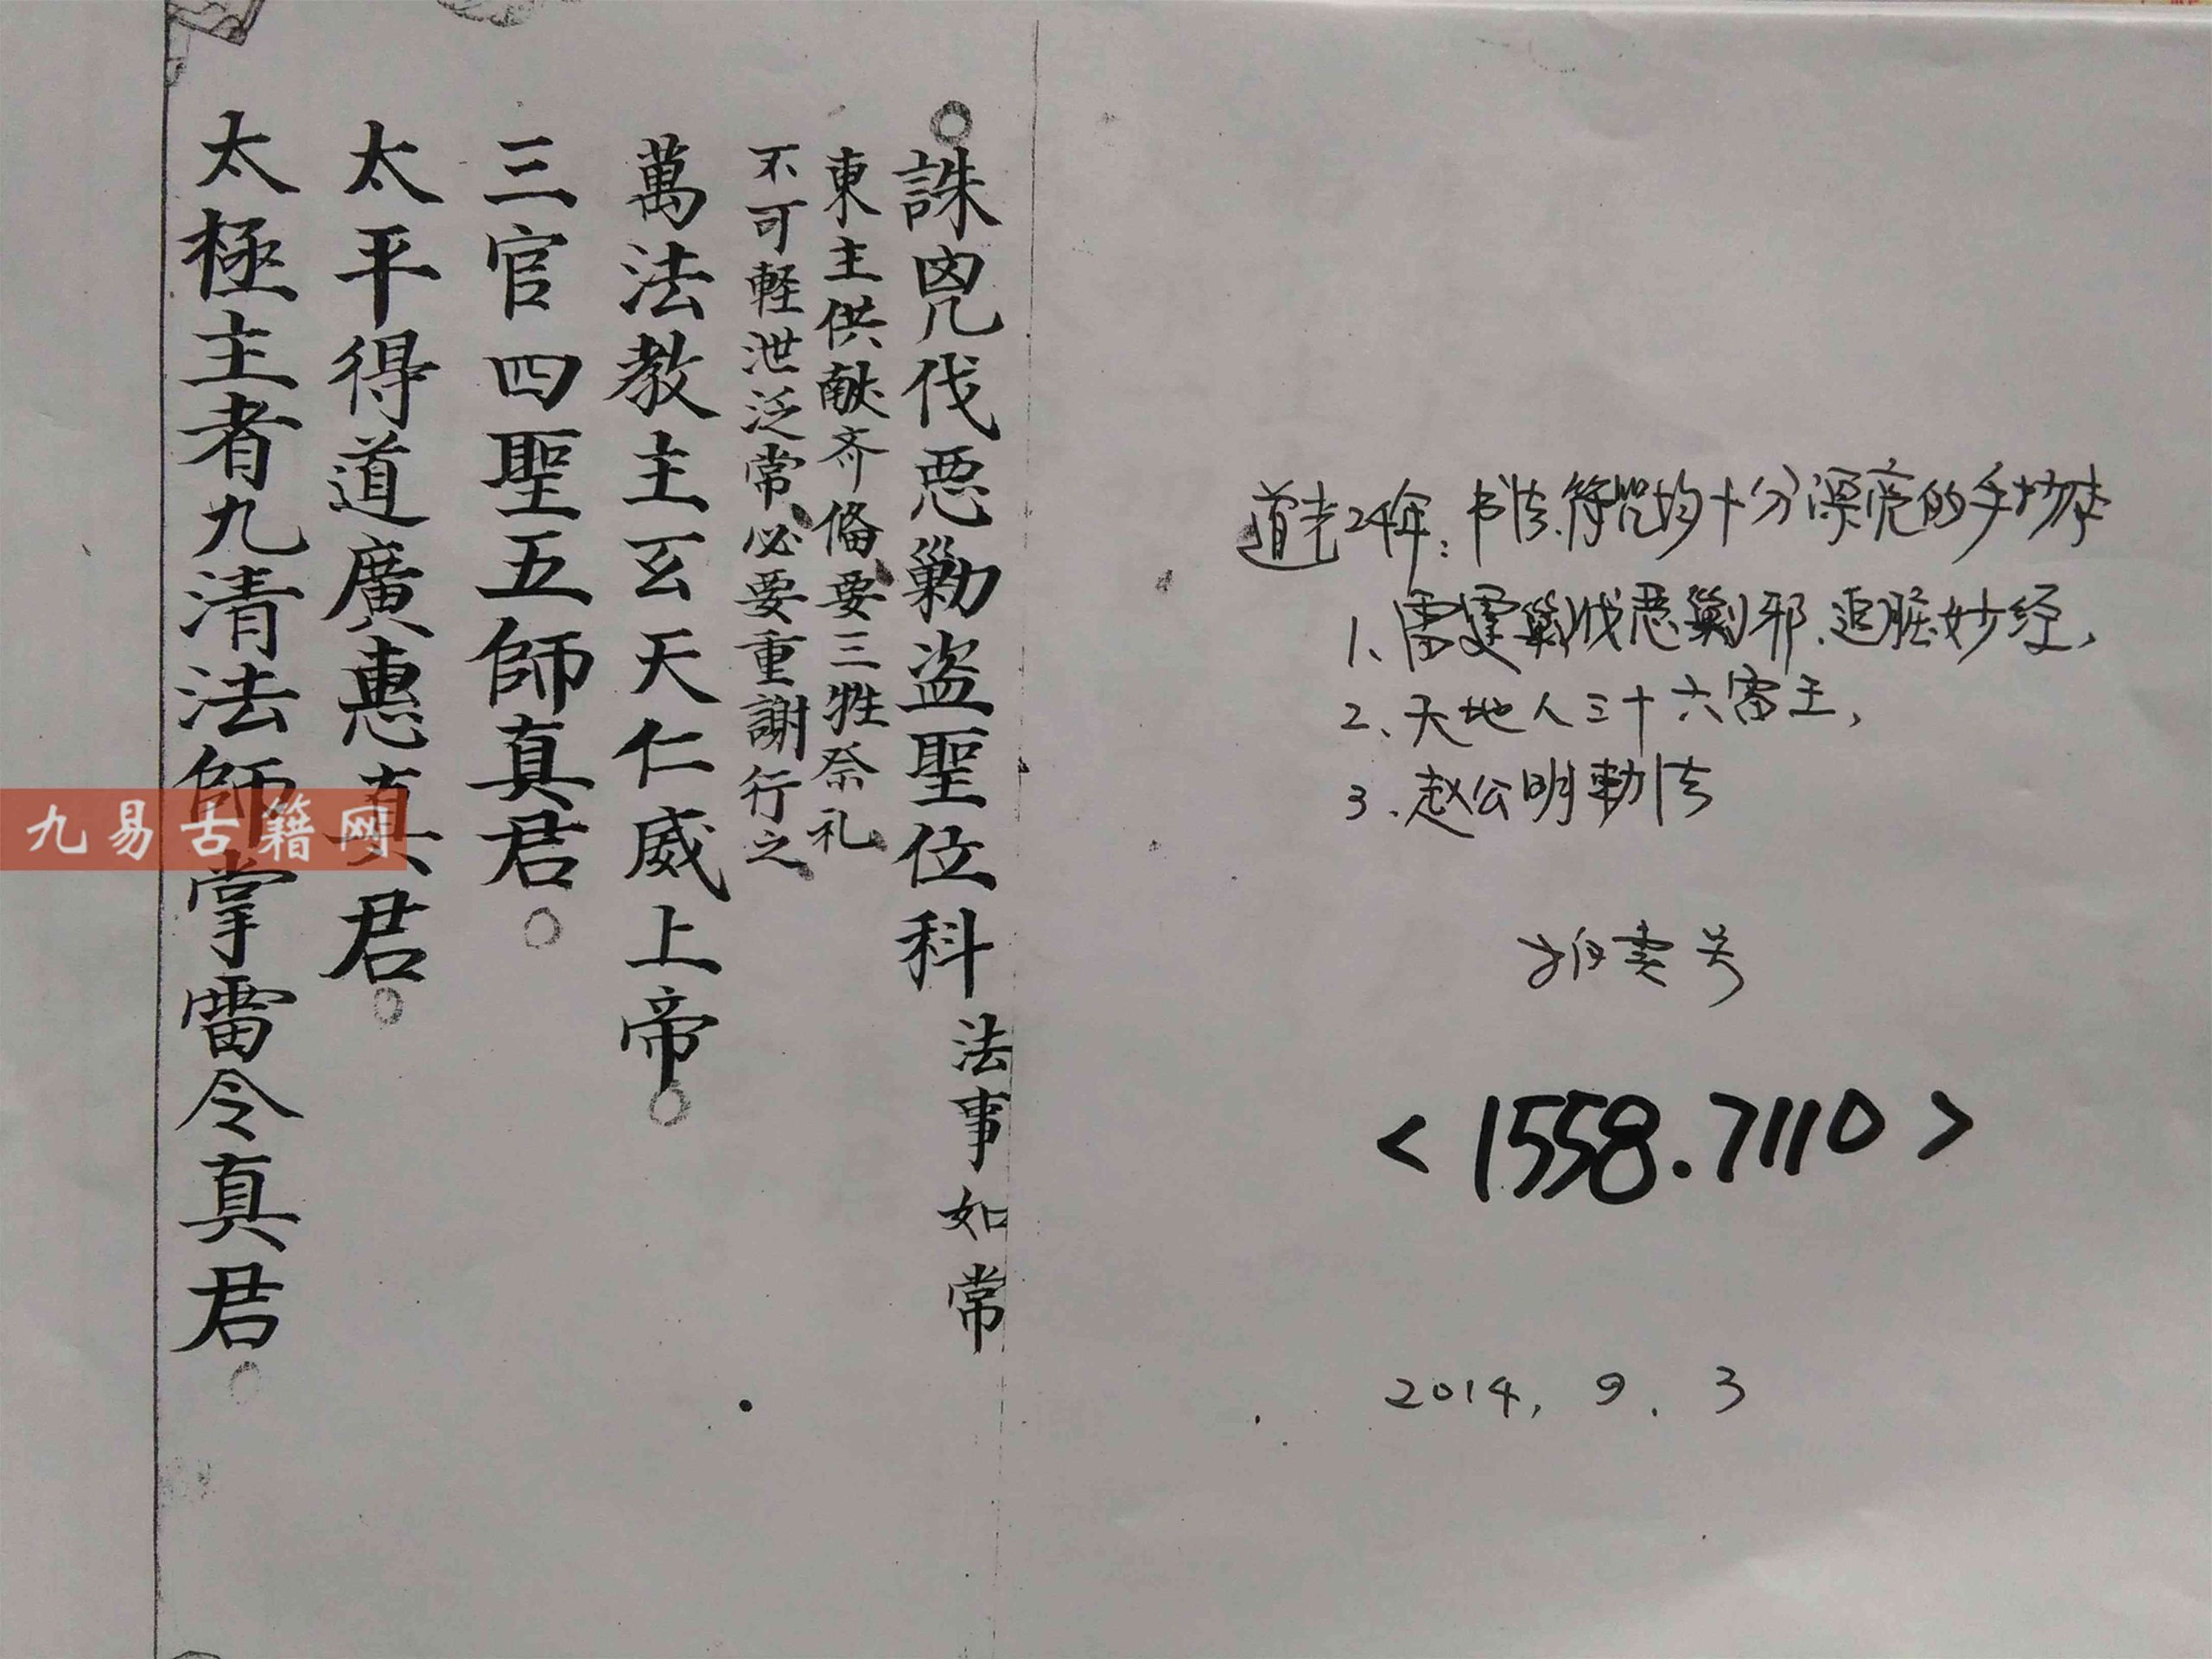 誅兇伐惡勦盗聖位科 法事如常
東主供献齐俻要三牲祭礼
不可軽泄泛常必要重謝行之
萬法教主玄天仁威上帝
三官四聖五師真君
太平得道廣惠真君
太極主者九清法師掌雷令真君
道光24年:书法、符咒均十分漂亮的手抄本
1、雷霆 伐恶剿邪、追賍妙经,
2、天地人三十六雷王,
3、赵公明勅法
<1558.7110>
2014, 9. 3
九易古籍网